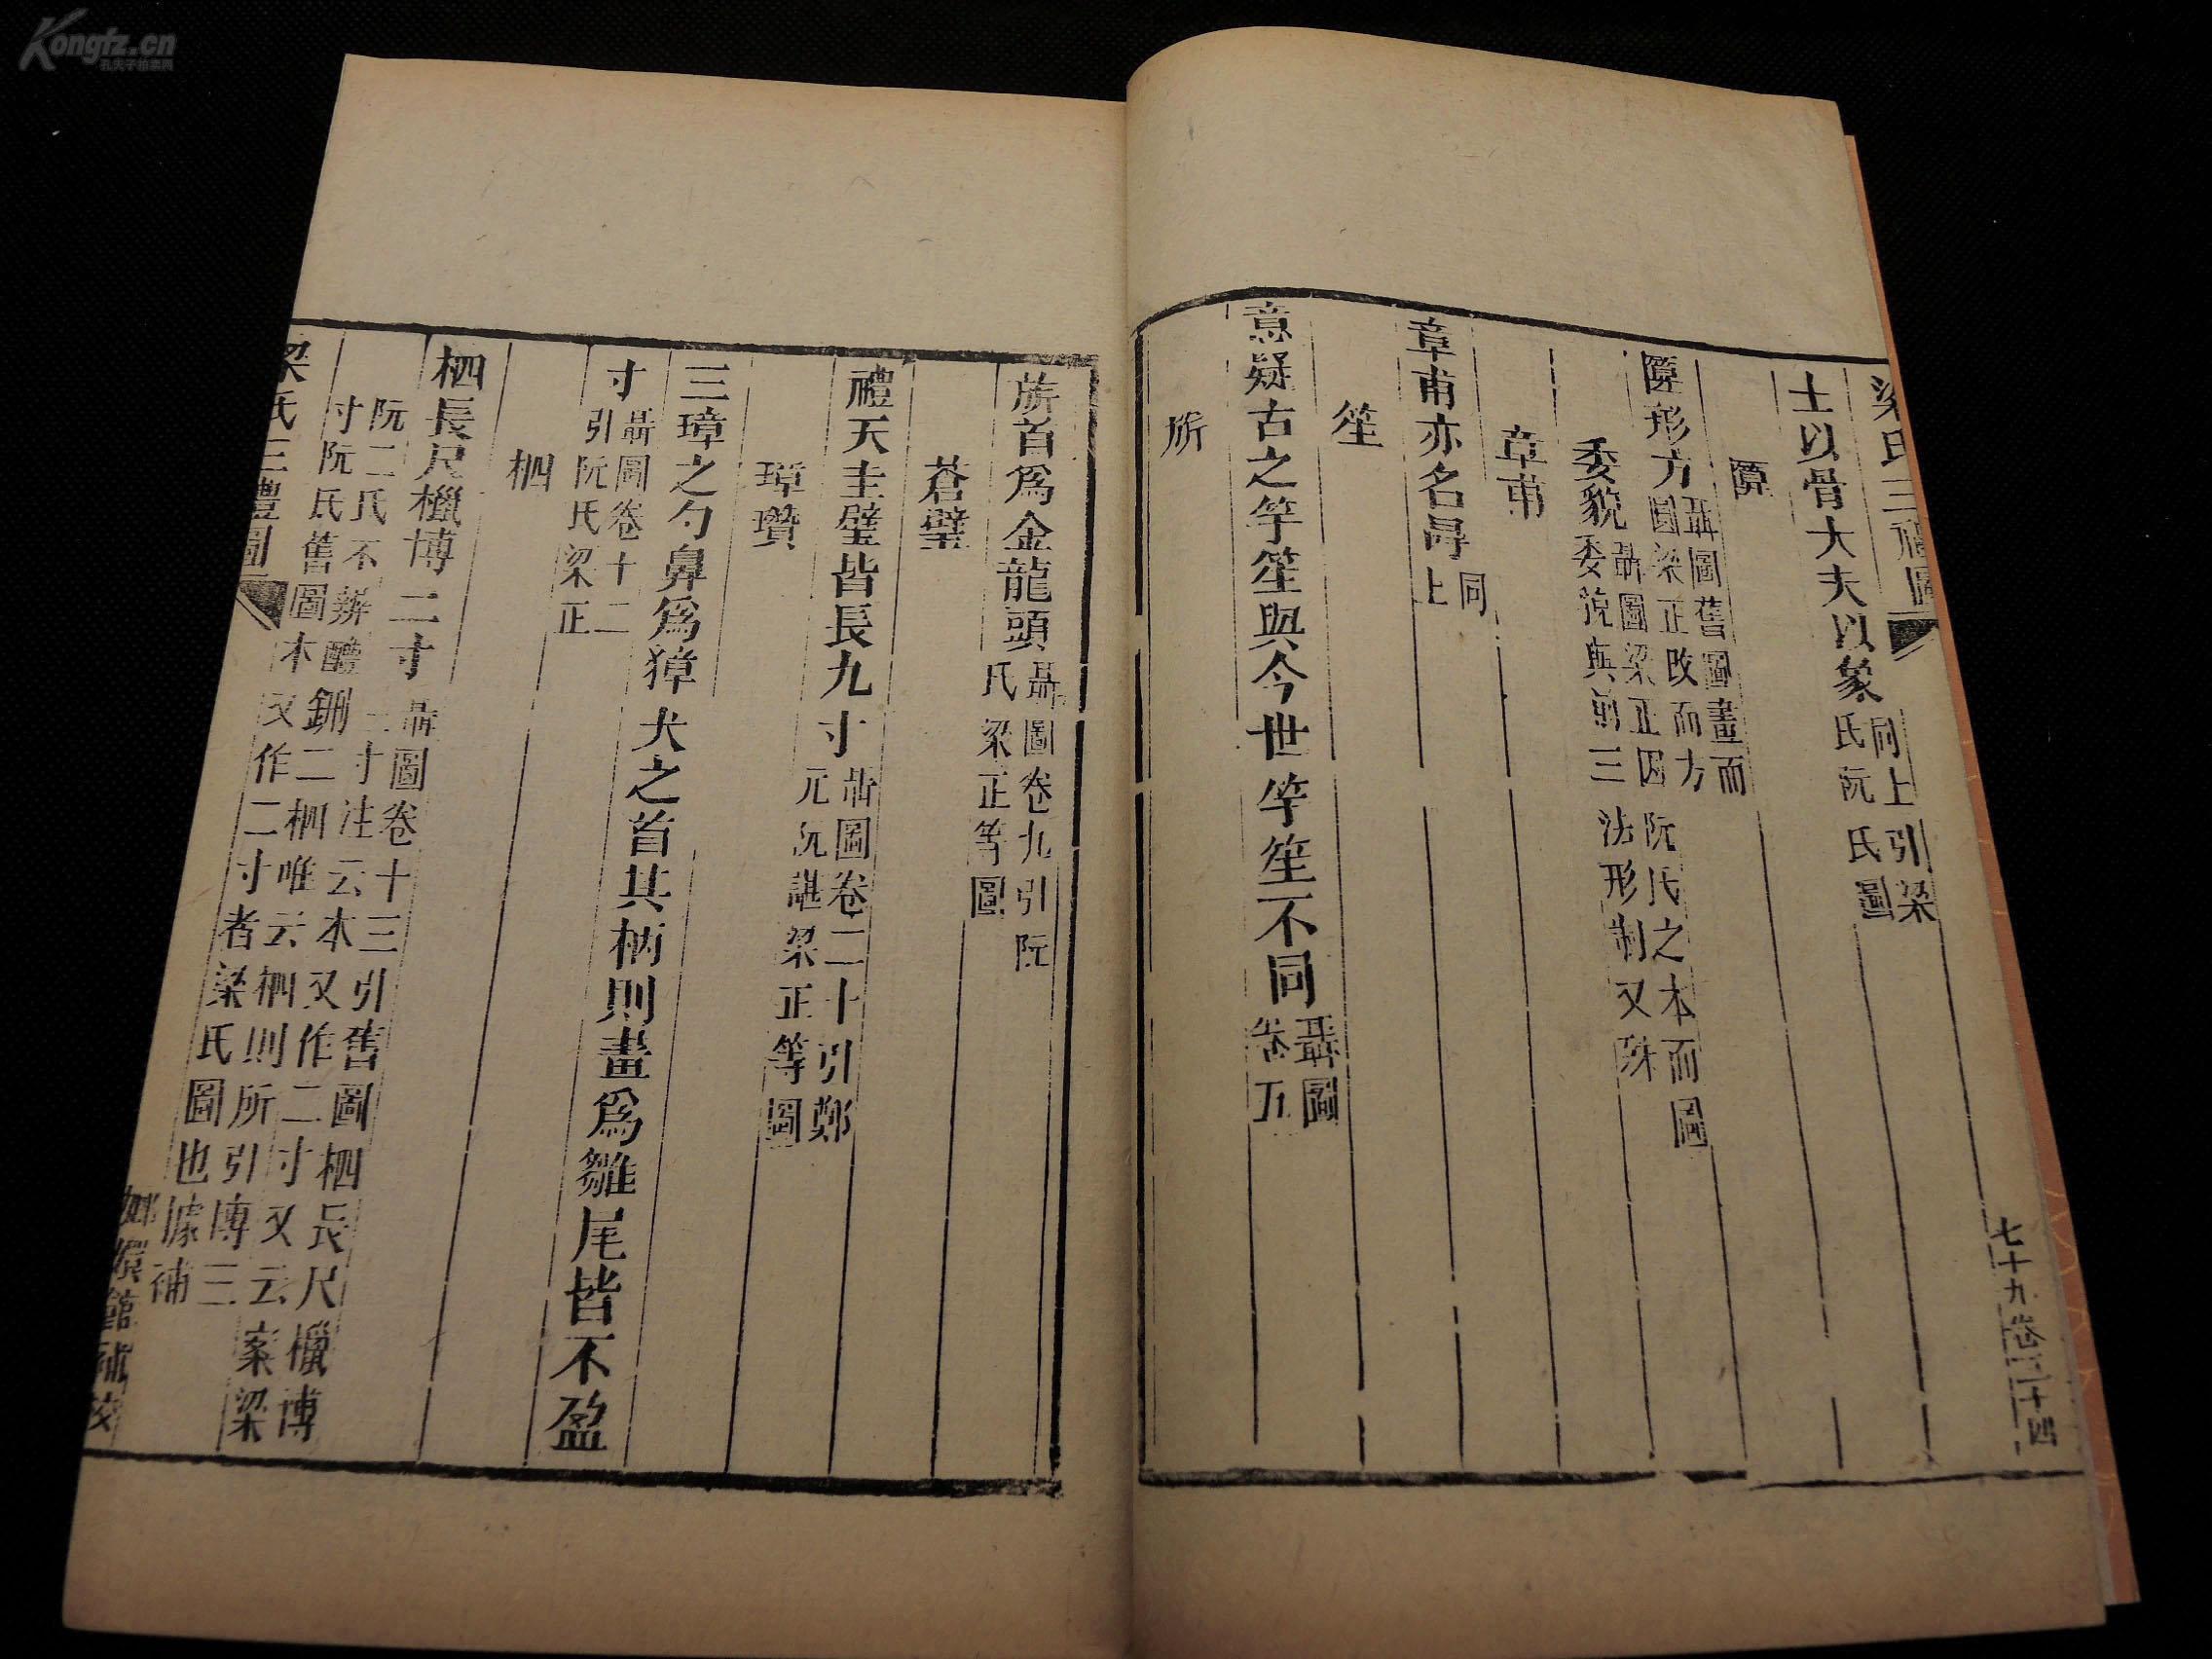 Kongfz.cn
孔夫子拍卖网
梁氏三禮圖
七十九卷三十四
士以骨大夫以象同上引梁
氏阮氏圖
匴
匴形方聶圖舊圖畫而
圓梁正改而方
委貌聶圖梁正因阮氏之本而圖
委貌與前三法形制又殊
章甫
章甫亦名冔同
上
笙
意疑古之竽笙與今世竽笙不同聶圖
卷五
旂
旂首爲金龍頭聶圖卷九引阮
氏梁正等圖
蒼璧
禮天圭璧皆長九寸聶圖卷二十引鄭
元阮諶梁正等圖
璋瓚
三璋之勺鼻爲獐犬之首其柄則畫爲雛尾皆不盈
寸聶圖卷十二
引阮氏梁正
柶
柶長尺㯿博二寸聶圖卷十三引舊圖柶長尺㯿博
三寸注云本又作二寸又云案梁
阮二氏不辨醴鉶二柶唯云柶則所引博三
寸阮氏舊圖本又作二寸者梁氏圖也據補
梁氏三禮圖
嫏嬛館補校